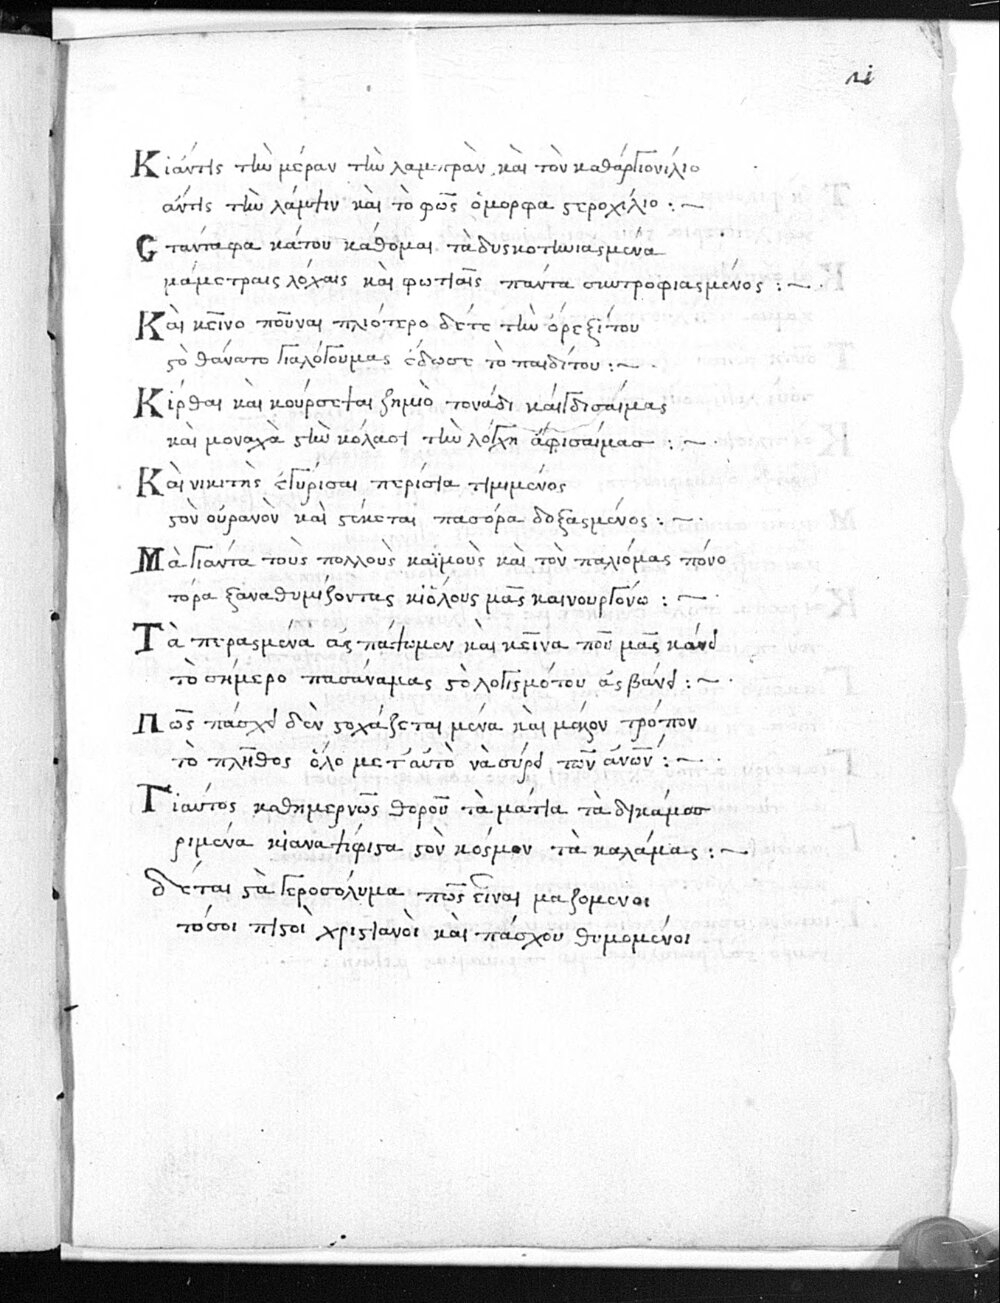 Κ ιἀντὶς τὴν μέραν τὴν λαμπρὰν, καὶ τὸν καθάργιον ἵλιο
ἀντὶς τὴν λάμψιν καὶ τὸ φῶς ὄμορφα ϛεροχίλιο : ~
Ϛ τὰντάφα κάτου κάθομαι τὰ δυσκοτινιασμένα
μὰ μετραις λόχαις καὶ φωτιαῖς πάντα σιντροφιασμένος : ~
Κ αὶ κεῖνο ποῦναι πλιότερο δέτε τὴν ὀρεξίτου
ϛὸ θάνατο γιαλόγουμας ἔδωσε τὸ παιδίτου : ~
Κ ίρθαι καὶ κούρσεψαι ζημιὸ τονάδι καὶγδισαίμας
καὶ μοναχὰ ϛὴν κόλασι τὴν λόγχη ἄφισαίμασ : ~
Κ αὶ νικιτὴς ἐγύρισαι περίσια τιμιμένος
ϛὸν οὐρανὸν καὶ ϛέκεται πασόρα δοξασμένος : ~
Μ ὰ γιάντα τοὺς πολλοὺς καϊμοὺς καὶ τὸν παλιόμας πόνο
τόρα ξαναθυμίζοντας κιὅλους μᾶς καινουργόνω : ~
Τ ὰ περασμένα ἀς πάψωμεν καὶ κεῖνα ποῦ μᾶς κάνει
τὸ σήμερο πασάναμας ϛὸ λογισμότου ἀς βάνει : ~
Π ῶς πάσχει δὲν ϛοχάζεται μένα καὶ μέκον τρόπον
τὸ πλῆθος ὅλο μετ' αὐτὸ νὰ σύρει τῶν ἀνῶν : ~
Γ ιαύτος καθημερνῶς θοροῦ τὰ μάτια τὰ δικάμασ
ριμένα κιαναψίφιϛα ϛὸν κόσμον τὰ καλάμας : ~
δ έται ϛὰ Γεροσόλυμα πῶς εἶναι μαζομένοι
τόσοι πιϛοὶ χριϛιανοὶ καὶ πάσχου θυμομένοι